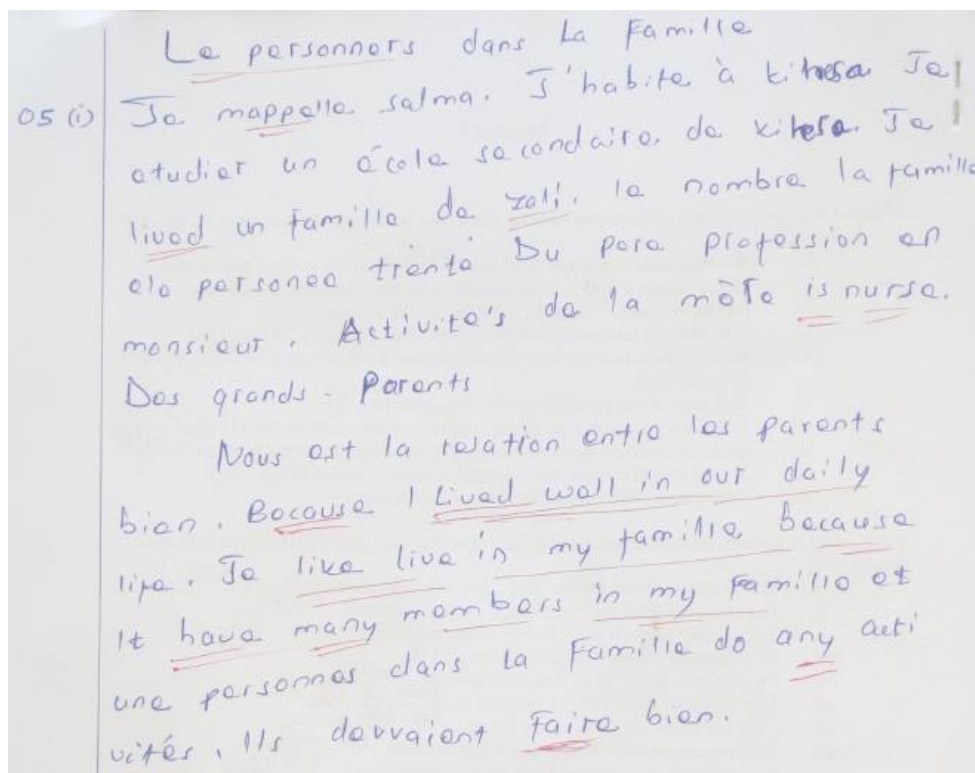 Le personners dans La Famille
05 (i) Je mappelle salma. J'habite à Je
etudier un école secondaire. de kitesa. Je
lived un famille de zali. le nombre la famille
ele personee trente Du pere profession en
monsieur. Activite's de la mère is nurse.
Des grands - Parents
Nous est la relation entre les parents
bien. Because I Lived well in our daily
life. Je like live in my famille because
It have many members in my Famille et
une personnes dans La Famille do any acti
vités. Ils devvaient Faire bien.